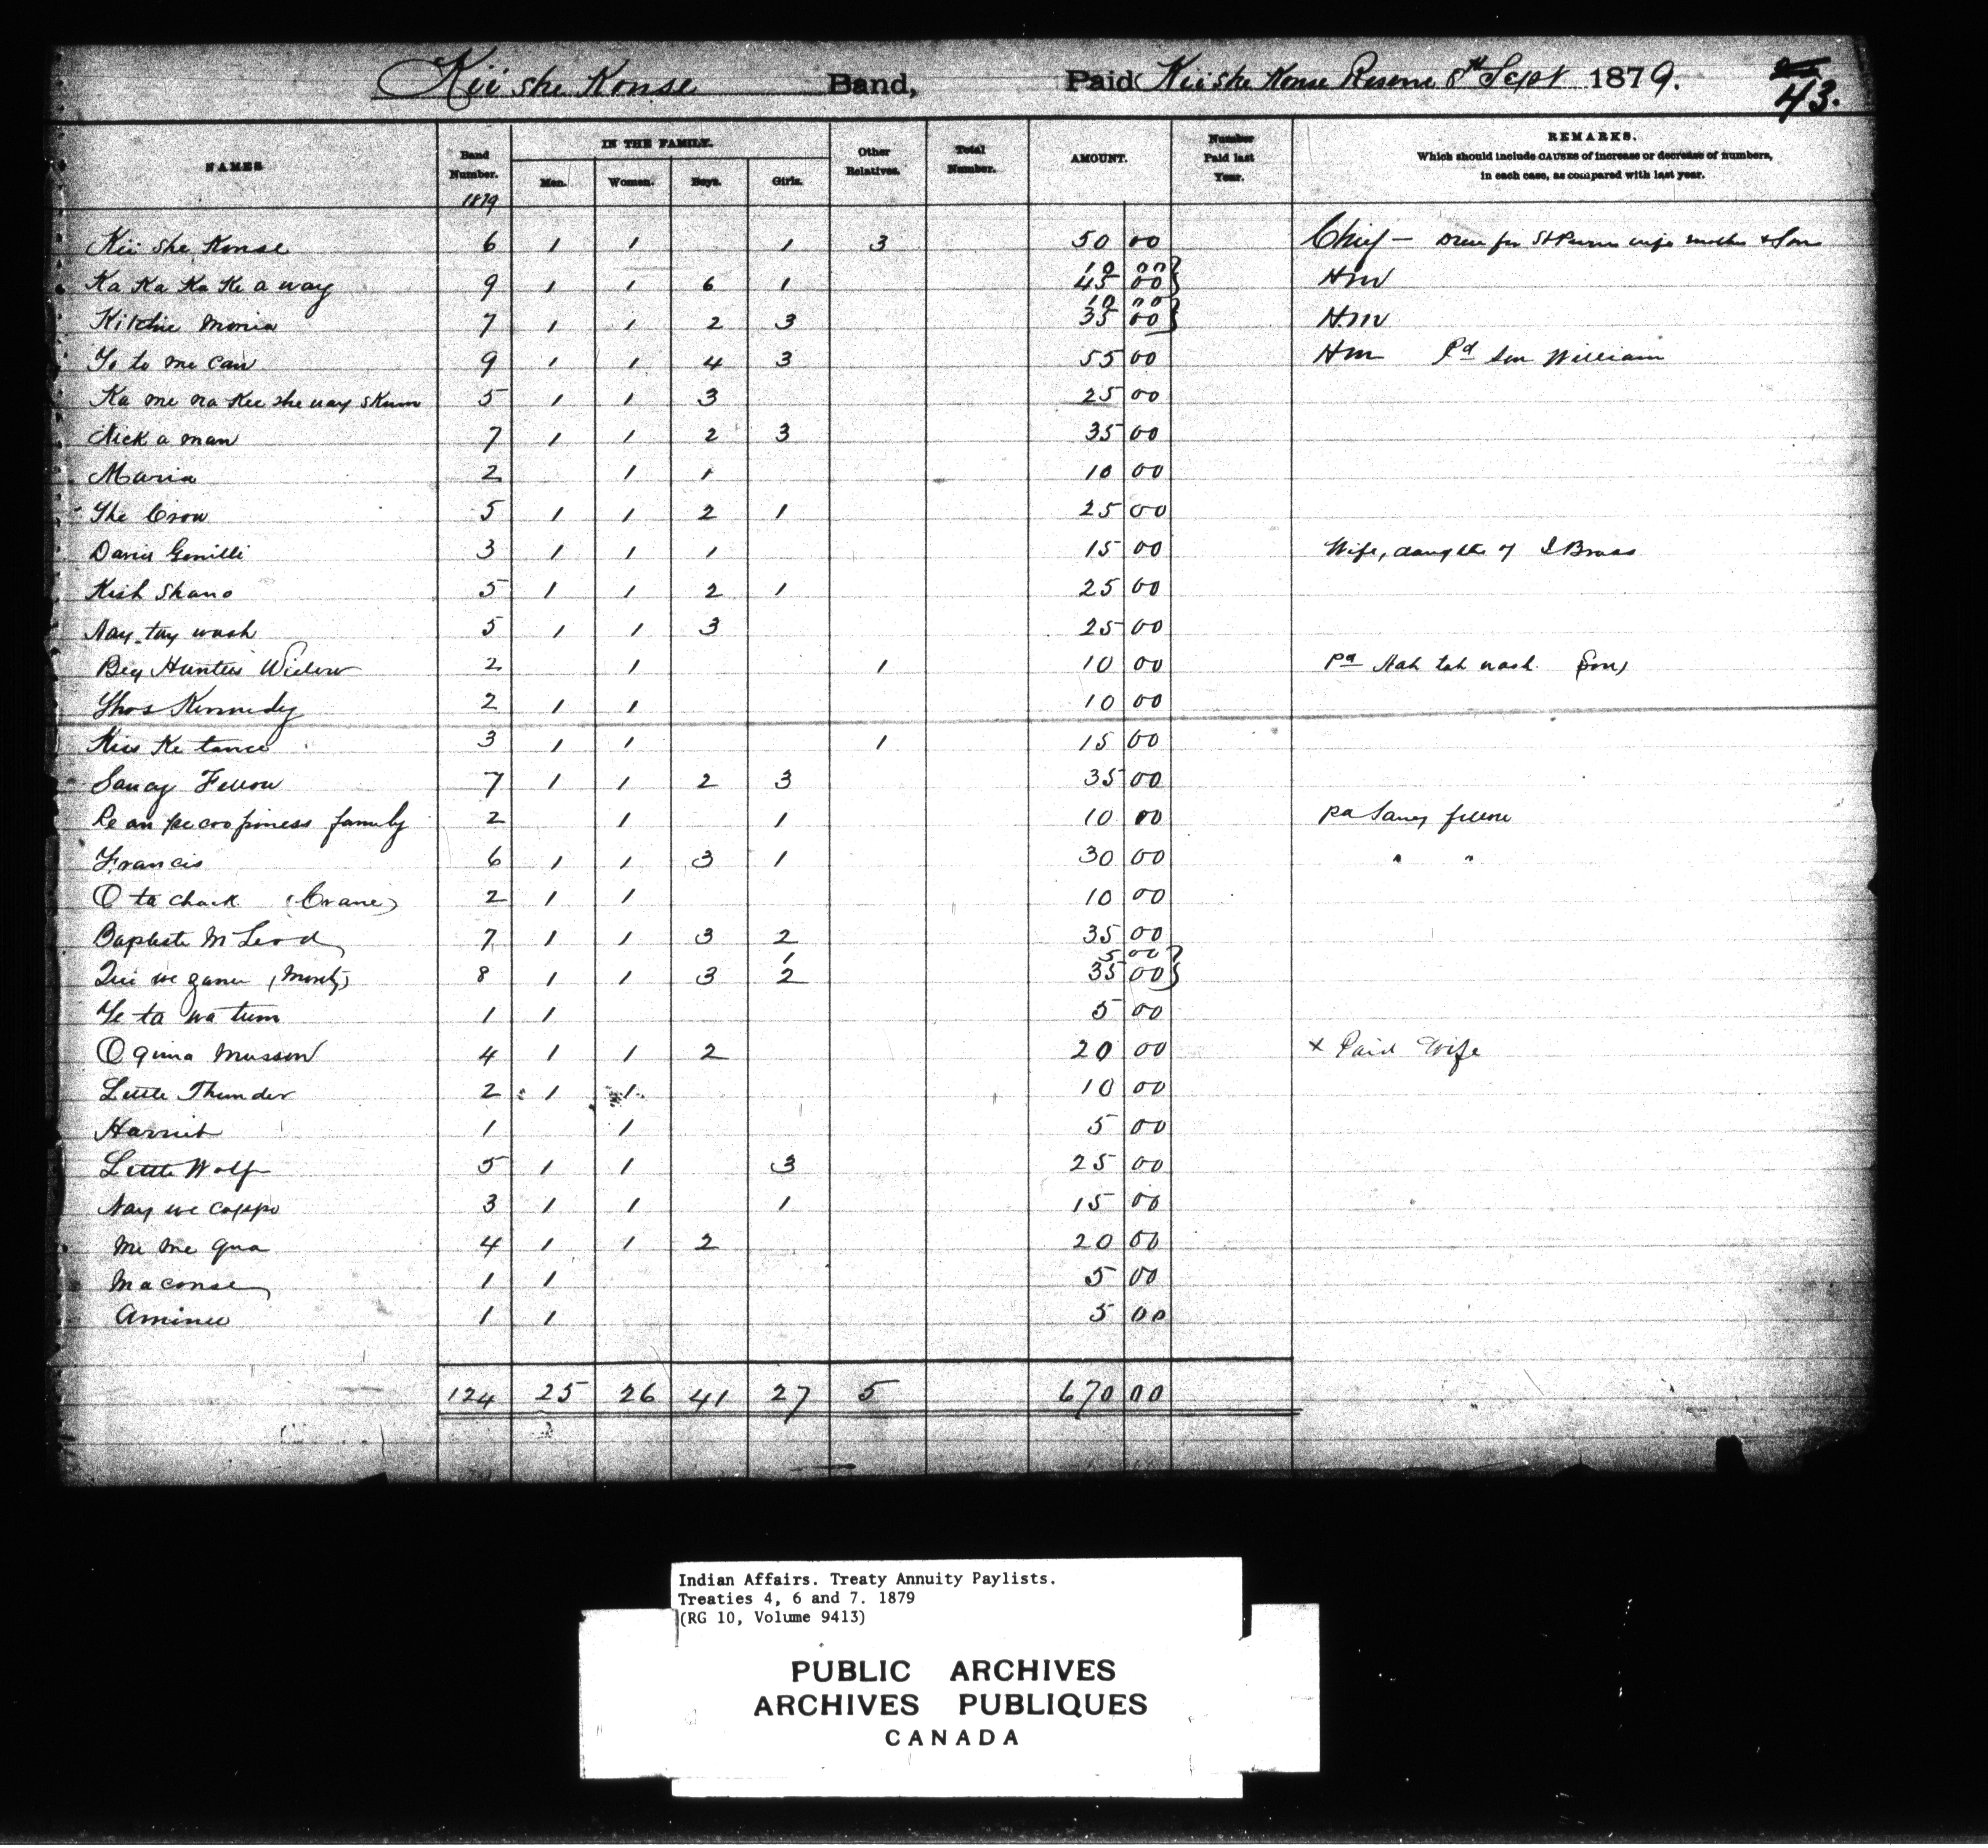 Kii she Konse Band, Paid Kii she Konse Reserve 8th Sept 1879. 43.
NAMES Band Number. IN THE FAMILY. Other Relatives. Total Number. AMOUNT. Number Paid last Year. REMARKS.
Men. Women. Boys. Girls. Which should include CAUSES of increase or decrease of numbers,
in each case, as compared with last year.
1879
Kii she Konse 6 1 1 1 3 50 00 Chief – wife mother & Son
10 00
Ka Ka Ka Ke a way 9 1 1 6 1 45 00 } HM
10 00
Kitchie Monia 7 1 1 2 3 35 00 } H.M
Yo to me can 9 1 1 4 3 55 00 HM Pd son William
Ka me na Kee she way skum 5 1 1 3 25 00
Nick a man 7 1 1 2 3 35 00
Maria 2 1 1 10 00
The Crow 5 1 1 2 1 25 00
3 1 1 1 15 00 Wife, daughter of Brass
Kish Shano 5 1 1 2 1 25 00
Nay tay wash 5 1 1 3 25 00
Big Hunters Widow 2 1 1 10 00 Pd Nah tah wash (Son)
Thos Kennedy 2 1 1 10 00
Kiss Ke tance 3 1 1 1 15 00
Saucy Fellow 7 1 1 2 3 35 00
family 2 1 1 10 00 Pd Saucy fellow
Francis 6 1 1 3 1 30 00 " "
O ta chack (Crane) 2 1 1 10 00
Baptiste McLeod 7 1 1 3 2 35 00
1 5 00
8 1 1 3 2 35 00 }
Ye ta wa tum 1 1 5 00
O quina Musson 4 1 1 2 20 00 x Paid Wife
Little Thunder 2 1 1 10 00
Harriet 1 1 5 00
Little Wolf 5 1 1 3 25 00
Nay we cappo 3 1 1 1 15 00
Me me qua 4 1 1 2 20 00
Maconse 1 1 5 00
1 1 5 00
124 25 26 41 27 5 670 00
Indian Affairs. Treaty Annuity Paylists.
Treaties 4, 6 and 7. 1879
(RG 10, Volume 9413)
PUBLIC ARCHIVES
ARCHIVES PUBLIQUES
CANADA